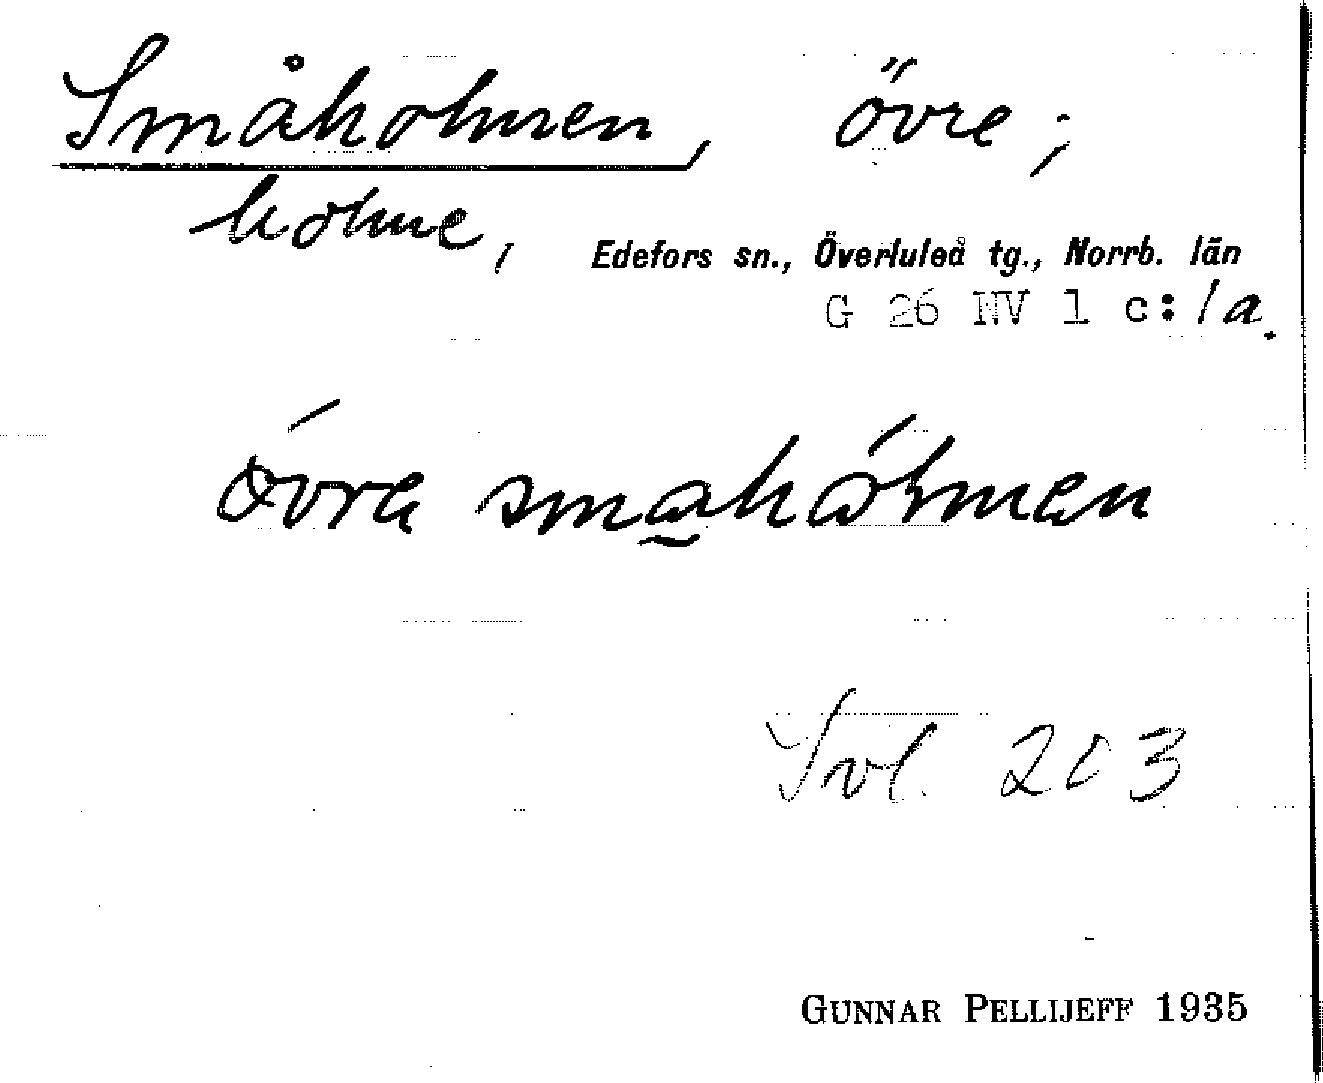 Småholmen, övre;
holme,
Edefors sn., Överluleå tg., Norrb. län
G 26 NV 1 c:1a.
övra småhólmen
Svl. 203
GUNNAR PELLIJEFF 1935